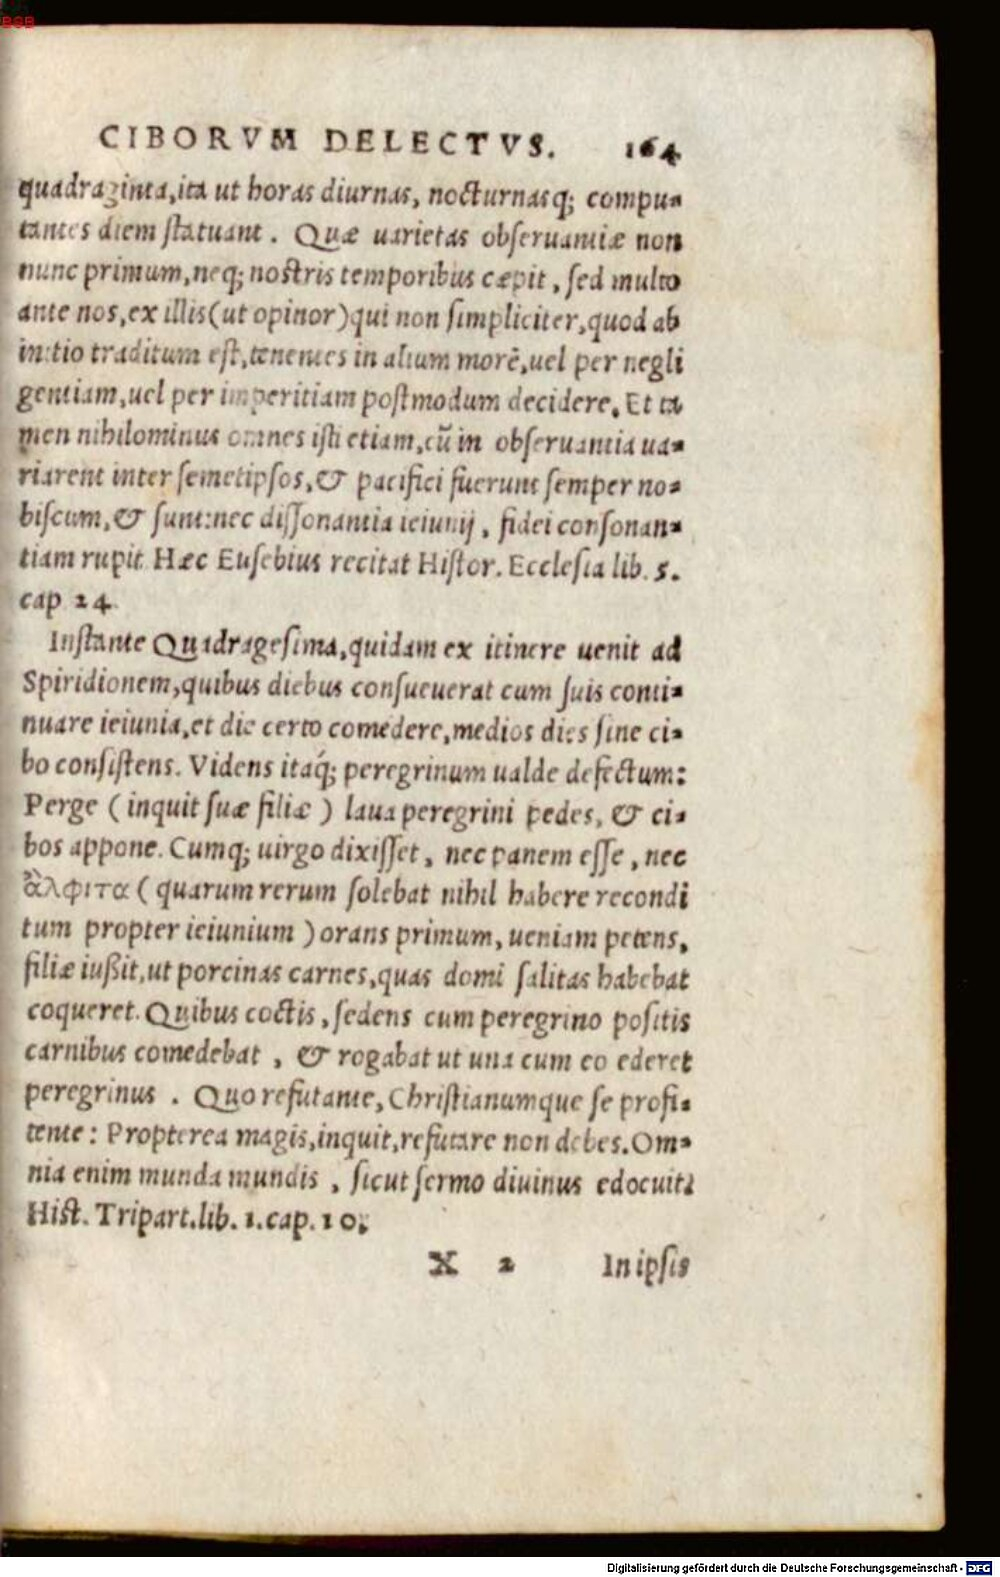 BSB
CIBORVM DELECTVS. 164
quadraginta,ita ut horas diurnas, nocturnasq; compu-
tantes diem statuant . Quæ uarietas obseruantiæ non
nunc primum,neq; nostris temporibus cæpit , sed multo
ante nos,ex illis(ut opinor)qui non simpliciter,quod ab
initio traditum est,tenentes in alium morē,uel per negli
gentiam,uel per imperitiam postmodum decidere. Et ta
men nihilominus omnes isti etiam,cū in obseruantia ua-
riarent inter semetipsos,& pacifici fuerunt semper no-
biscum,& sunt:nec dissonantia ieiunij , fidei consonan-
tiam rupit Hæc Eusebius recitat Histor. Ecclesia lib. 5.
cap 24.
Instante Quadragesima,quidam ex itinere uenit ad
Spiridionem,quibus diebus consueuerat cum suis conti-
nuare ieiunia,et die certo comedere,medios dies sine ci-
bo consistens. Videns itaq́; peregrinum ualde defectum:
Perge ( inquit suæ filiæ ) laua peregrini pedes, & ci-
bos appone. Cumq; uirgo dixisset , nec panem esse , nec
ἄλφιτα ( quarum rerum solebat nihil habere recondi
tum propter ieiunium ) orans primum, ueniam petens,
filiæ iußit,ut porcinas carnes,quas domi salitas habebat
coqueret. Quibus coctis , sedens cum peregrino positis
carnibus comedebat , & rogabat ut una cum eo ederet
peregrinus . Quo refutante, Christianumque se profi-
tente : Propterea magis,inquit,refutare non debes. Om-
nia enim munda mundis , sicut sermo diuinus edocuit:
Hist. Tripart.lib. 1.cap.10.
X 2 In ipsis
Digitalisierung gefördert durch die Deutsche Forschungsgemeinschaft - DFG